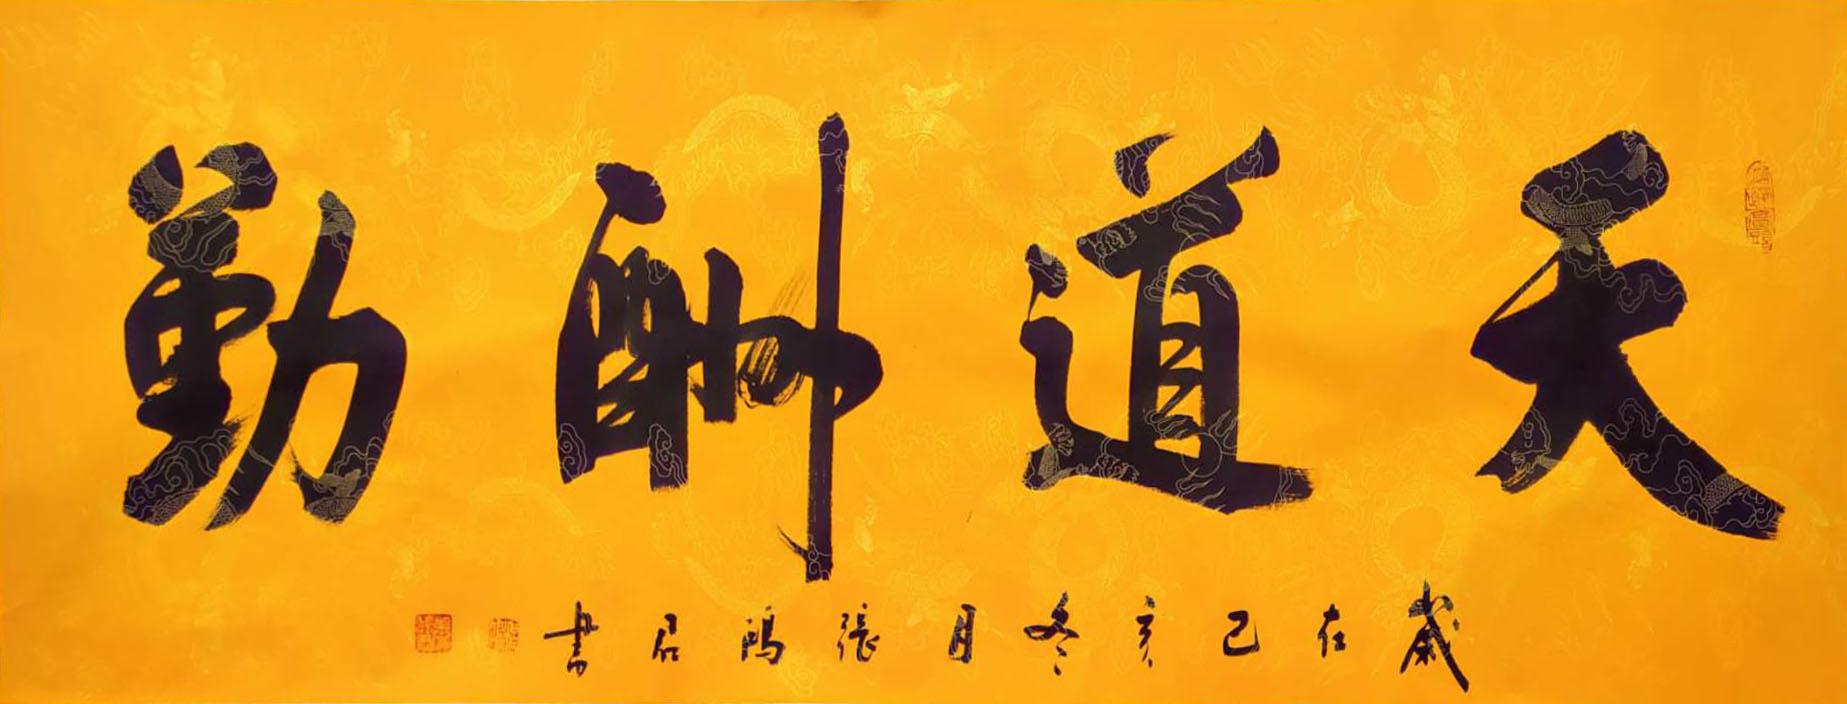 天道酬勤
歲在己亥冬月張鴻君書